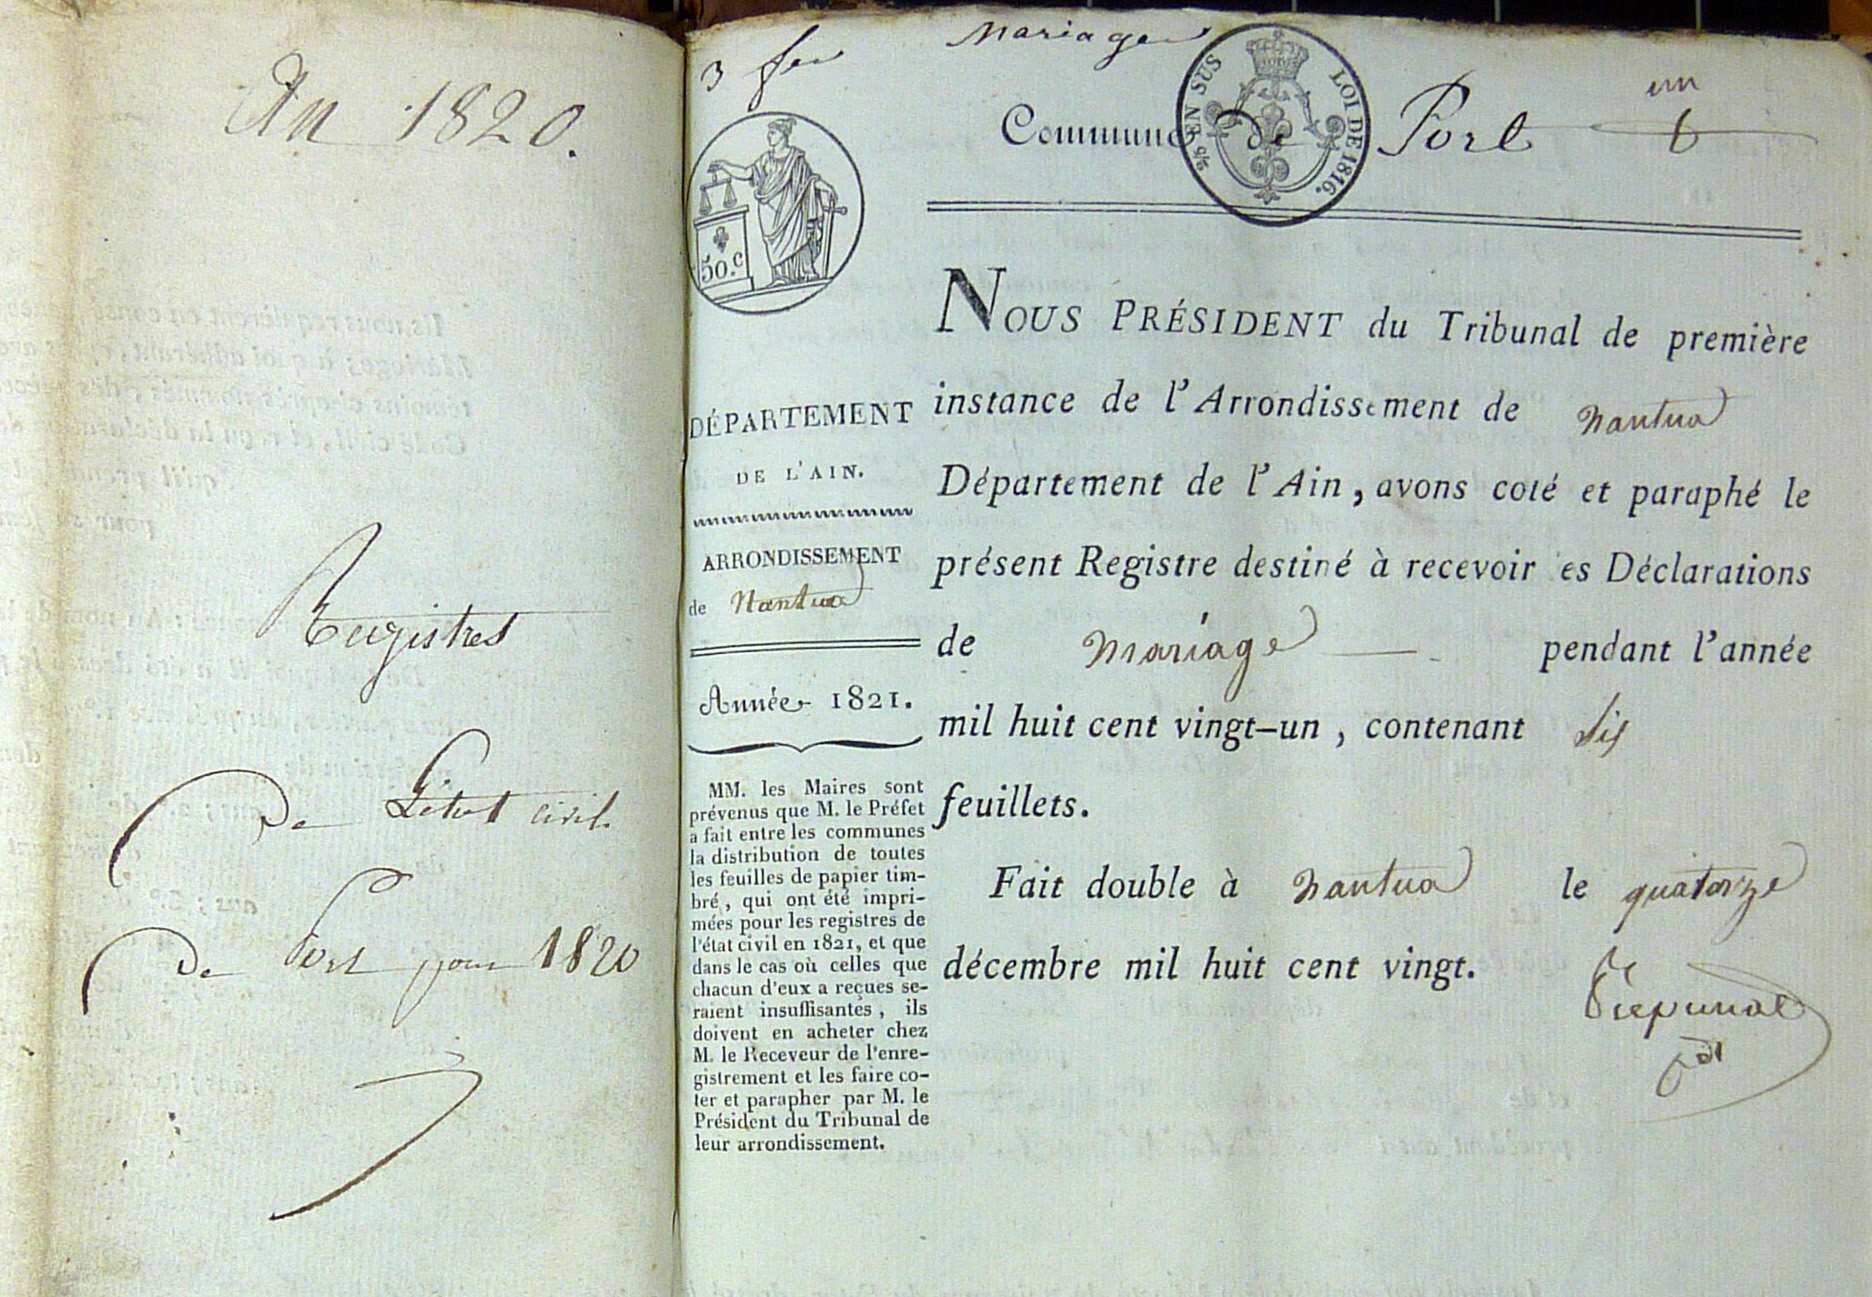 An 1820.
Registres
De L'état civil
De Port pour 1820
3 feu
Mariages
EN SUS
LOI DE 1816.
Commune de Port
un
6
50.c
DÉPARTEMENT
DE L'AIN.
ARRONDISSEMENT
de Nantua
Année 1821.
MM. les Maires sont
prévenus que M. le Préfet
a fait entre les communes
la distribution de toutes
les feuilles de papier tim-
bré, qui ont été impri-
mées pour les registres de
l'état civil en 1821, et que
dans le cas où celles que
chacun d'eux a reçues se-
raient insuffisantes, ils
doivent en acheter chez
M. le Receveur de l'enre-
gistrement et les faire co-
ter et parapher par M. le
Président du Tribunal de
leur arrondissement.
NOUS PRÉSIDENT du Tribunal de première
instance de l'Arrondissement de Nantua
Département de l'Ain, avons coté et paraphé le
présent Registre destiné à recevoir es Déclarations
de Mariage pendant l'année
mil huit cent vingt-un, contenant six
feuillets.
Fait double à Nantua le quatorze
décembre mil huit cent vingt.